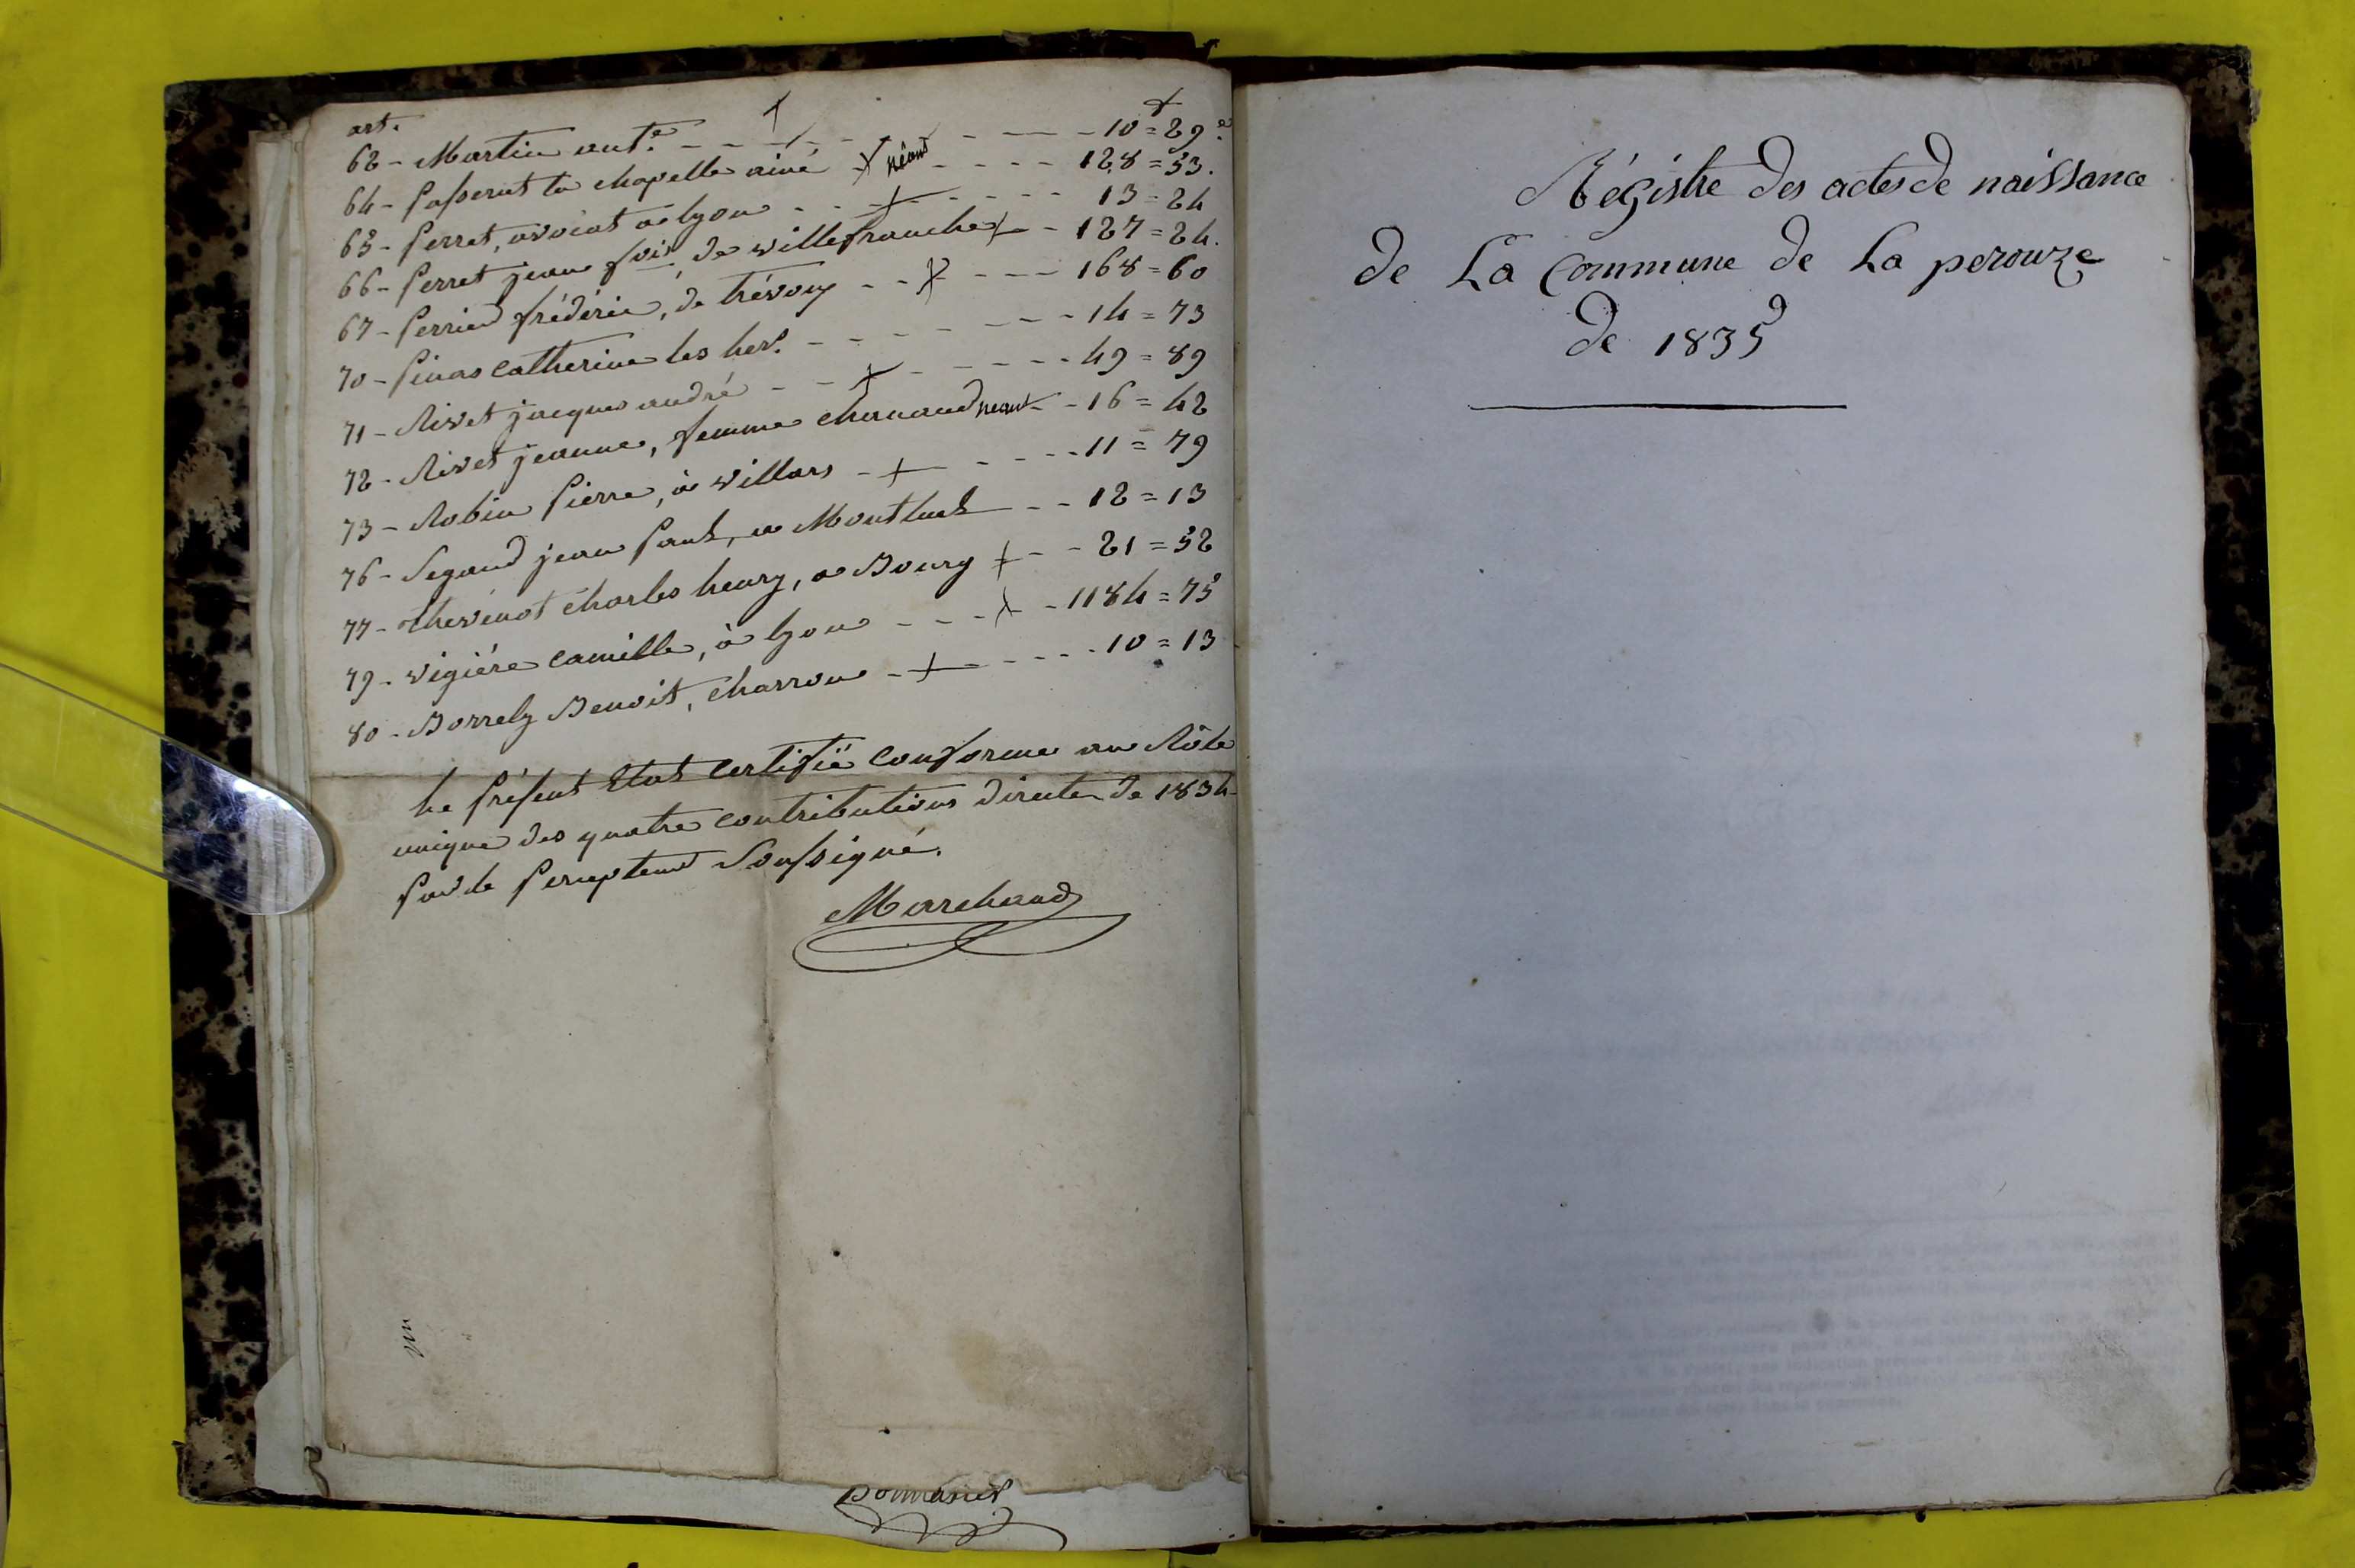 art.
62 - Martin ant.e - - - - - - 10 = 29 c.
64 - Passerat la chapelle ainé néant - - - - 128 = 53.
65 - Perret, avocat a lyon - - - - - - 13 = 24
66 - Perret jean fois, de villefranche - - 127 = 24.
67 - Perrier frédéric, de trévoux - - - - - 168 = 60
70 - Pinas Catherine les her. - - - - - - - 14 = 73
71 - Rivet jacques andré - - - - - - - 49 = 89
72 - Rivet jeanne, femme Chanaud neant - - 16 = 42
73 - Robin Pierre, à villars - - - - - 11 = 79
76 - Segaud jean Paul, a Montluel - - 12 = 13
77 - thevenot Charles henry, a Bourg - - 21 = 52
79 - vigiére Camille, à lyon - - - - 1184 = 75
80 - Borrely Benoit, Charron - - - - - 10 = 13
Le présent Etat Certifié Conforme au Rôle
unique des quatre contributions directes de 1834
Par le Percepteur Soussigné.
Marchand
Régistre des actes de naissance
de La Commune de La perouze
de 1835